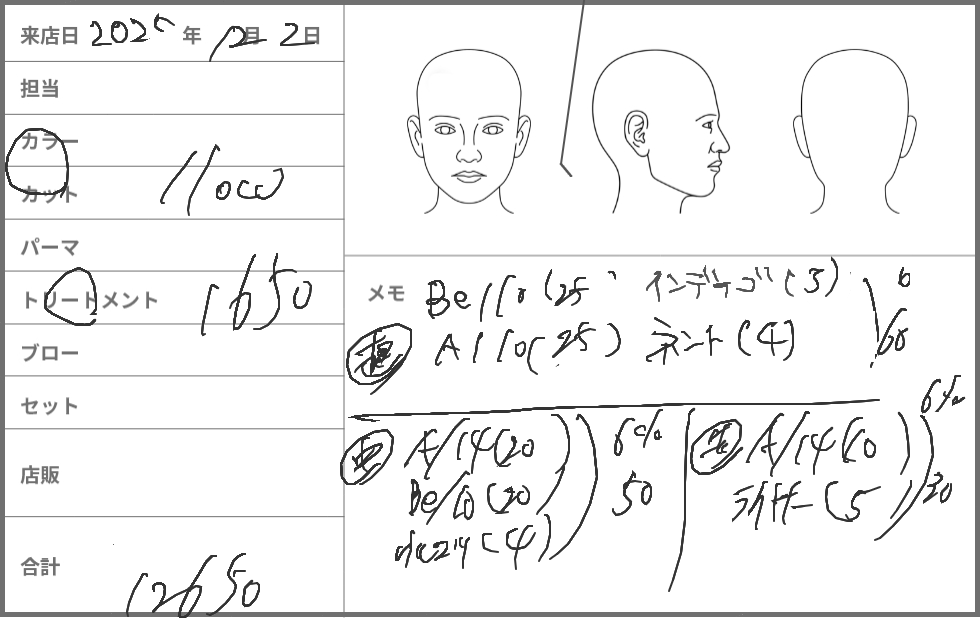 来店日 2025年 12月 2日
担当
カラー
カット 11000
パーマ
トリートメント 1650
ブロー
セット
店販
合計 12650
メモ
Be/10 (25) インディゴ (3) 6
A/10 (25) ミント (4) 60
A/14 (20 6% 50
Be/10 (20)
(4)
A/14 (10) 6% 30
ライトナー (5)